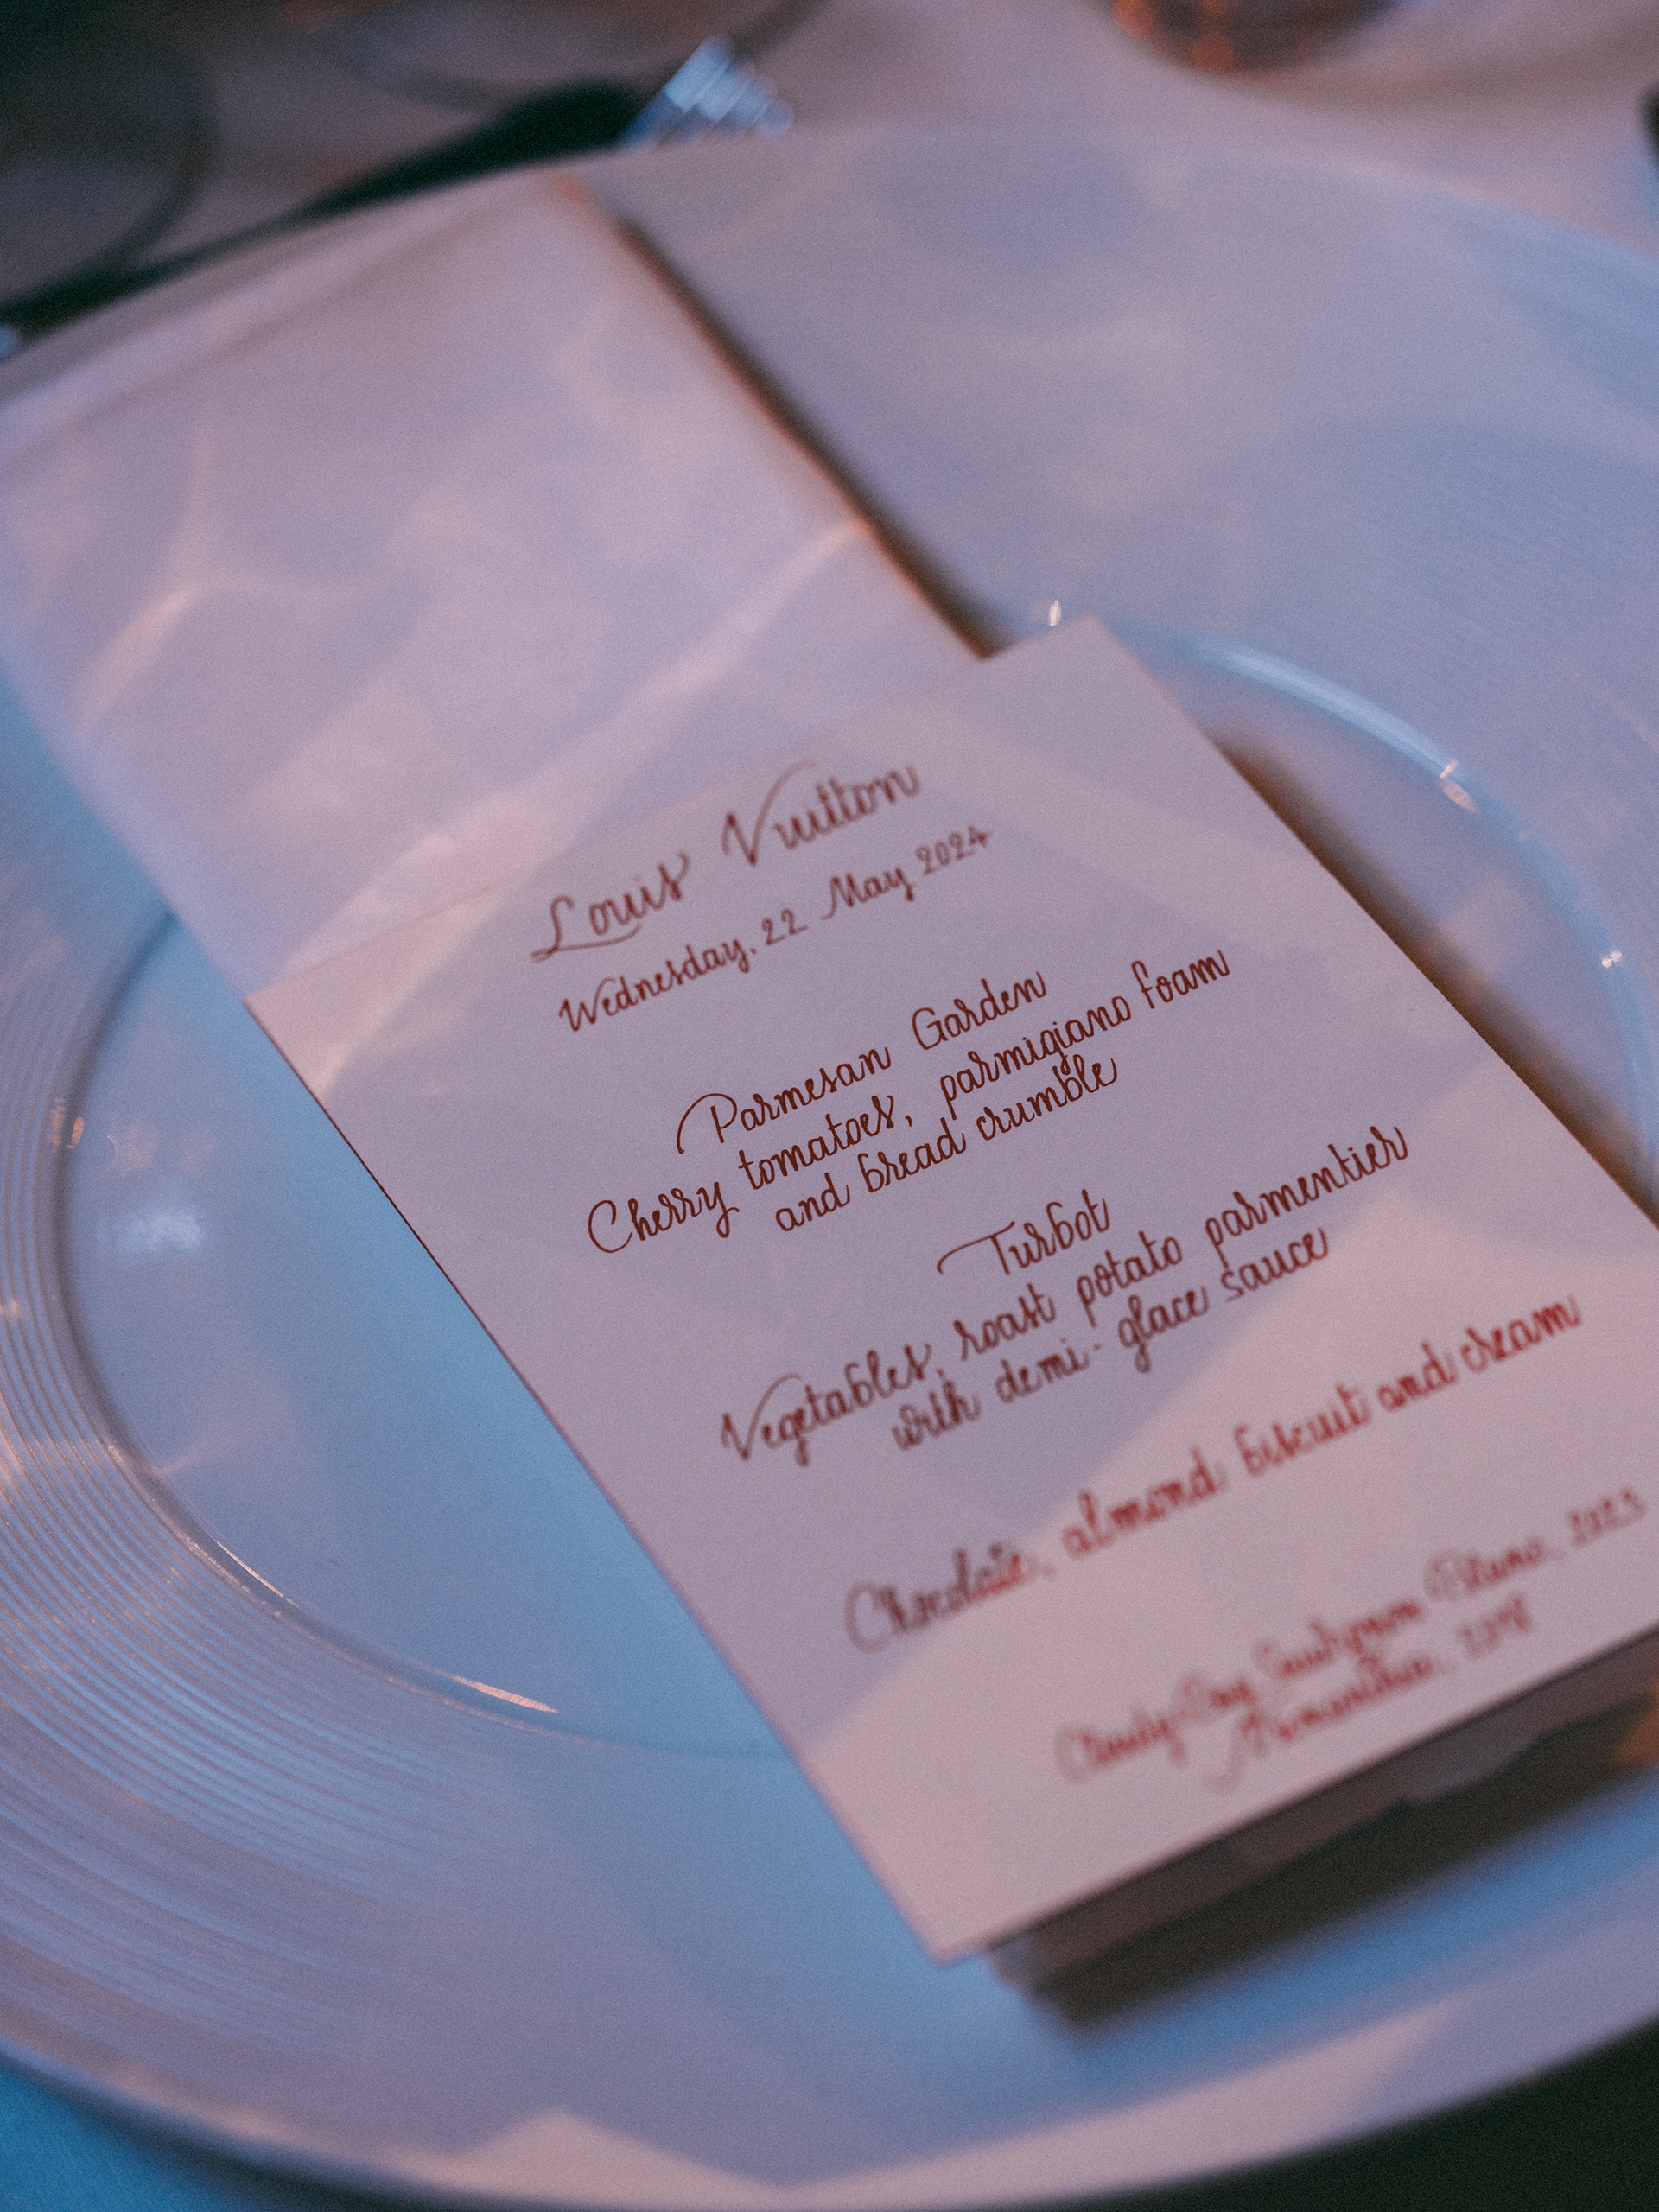 Louis Vuitton
Wednesday. 22 May 2024
Parmesan Garden
Cherry tomatoes, parmigiano foam
and bread crumble
Turbot
Vegetables, roast potato parmentier
with demi-glace sauce
Chocolate, almond biscuit and cream
Cloudy Bay Sauvignon Blanc, 2023